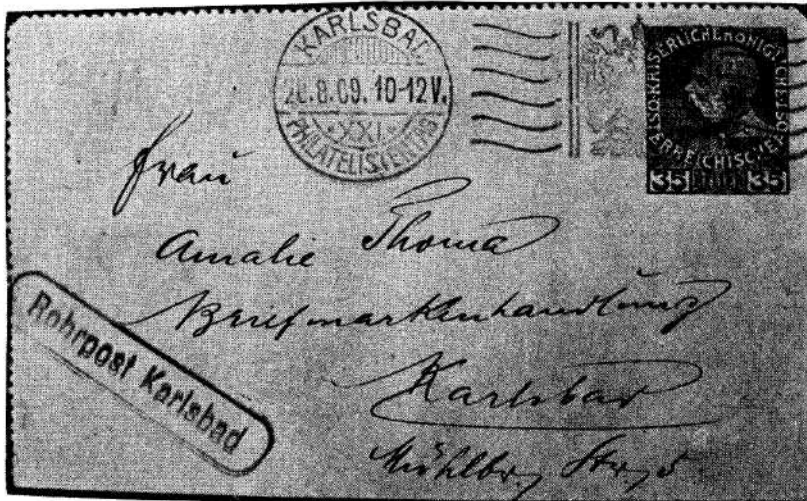 KARLSBAD
8.09. 10-12V.
XXI.
PHILATELISTENTAG
KAISERLICHE KÖNIGLICHE ÖSTERREICHISCHE
35 35
Frau
Amalie Thoma
Briefmarkenhandlung
Karlsbad
Mühlbr. Str. 5
Rohrpost Karlsbad